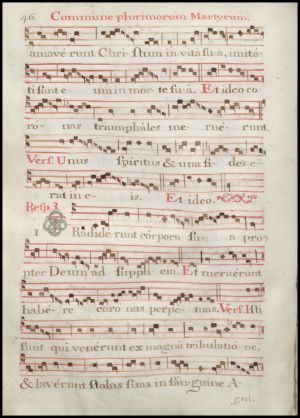 46. Commune plurimorum Martyrum.
amavé-runt Chri-stum in vitâ suâ, imitá-
ti sunt e- um in mor-te su-â. Et ideo co-
ró- nas triumpháles me-rue-runt.
Vers. Unus spíritus & una fi-des e-
rat in e- is. Et ideo.
Resp. 3.
TRadide-runt córpora su- a pro-
pter Deum ad supplí-cia. Et meruérunt
habé-re coro nas perpe-tuas. Vers. Isti
sunt qui venérunt ex magna tribulatió-ne,
& lavérunt stolas suas in sánguine A-
gni.